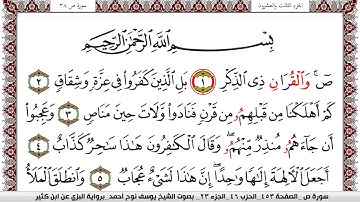 الجزء الثالث والعشرون
سورة ص ٣٨
بِسْمِ اللَّهِ الرَّحْمَٰنِ الرَّحِيمِ
صٓ ۚ وَالْقُرَانِ ذِى الذِّكْرِ ١ بَلِ الَّذِينَ كَفَرُوا۟ فِى عِزَّةٍ وَشِقَاقٍ ٢
كَمْ أَهْلَكْنَا مِن قَبْلِهِمُۥ مِن قَرْنٍ فَنَادَوا۟ وَّلَاتَ حِينَ مَنَاصٍ ٣ وَعَجِبُوٓا۟
أَن جَآءَهُمُۥ مُنذِرٌ مِّنْهُمُۥ ۖ وَقَالَ الْكَٰفِرُونَ هَٰذَا سَٰحِرٌ كَذَّابٌ ٤
أَجَعَلَ الْءَالِهَةَ إِلَٰهًا وَٰحِدًا ۖ إِنَّ هَٰذَا لَشَىْءٌ عُجَابٌ ٥ وَانطَلَقَ الْمَلَأُ
سورة ص الصفحة ٤٥٣ الحزب ٤٦ الجزء ٢٣ بصوت الشيخ يوسف نوح احمد برواية البزي عن ابن كثير